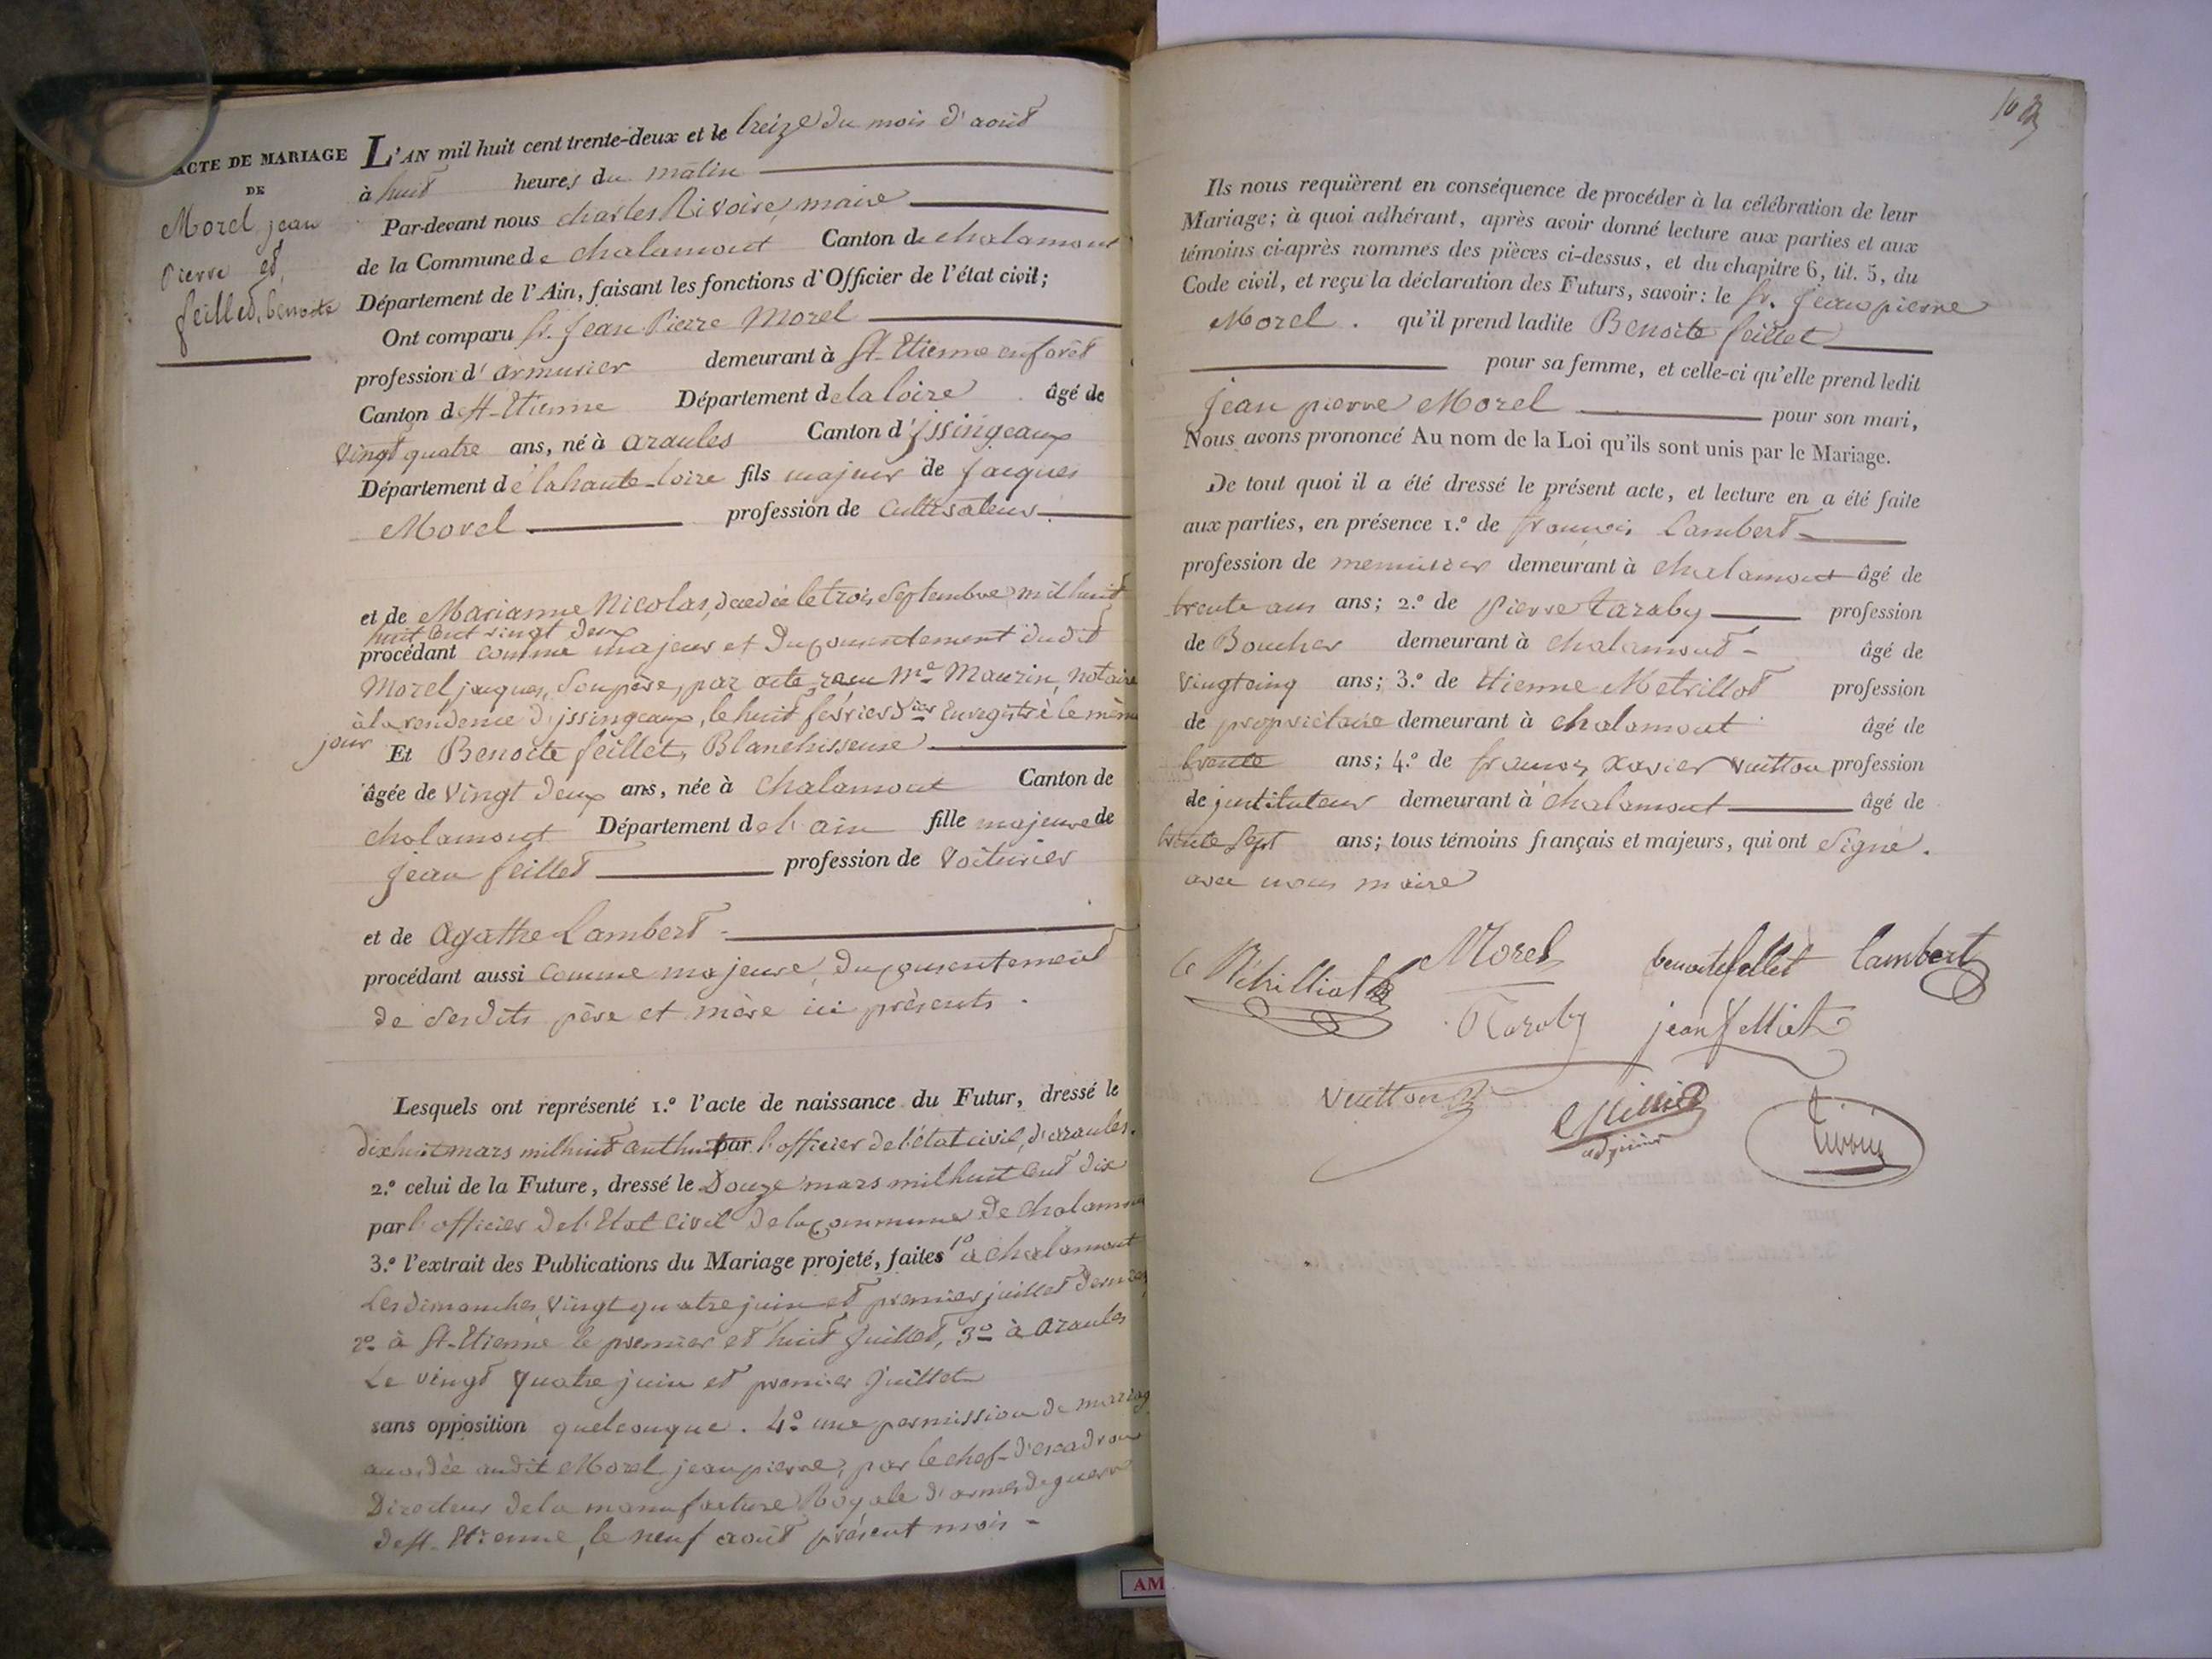 ACTE DE MARIAGE
DE
Morel jean
Pierre et
feillet, benoite
L'AN mil huit cent trente-deux et le treize du mois d'août
à huit heures du matin
Par-devant nous charles Rivoire, maire
de la Commune de chalamont Canton de chalamont
Département de l'Ain, faisant les fonctions d'Officier de l'état civil;
Ont comparu Sr. Jean Pierre Morel
profession d'armurier demeurant à St-Etienne en forêt
Canton de St-Etienne Département de la loire âgé de
vingt quatre ans, né à araules Canton d'jssingeaux
Département de la haute-loire fils majeur de jacques
Morel profession de cultivateur
et de Marianne Nicolas, décédée le trois septembre mil huit
huit cent vingt deux
procédant comme majeur et du consentement dudit
Morel jacques, son père, par acte reçu Me Maurin, notaire
à la residence d'jssingeaux, le huit février dier Enregistré le même
jour
Et Benoite feillet, Blanchisseuse
âgée de vingt deux ans, née à chalamont Canton de
chalamont Département de l'ain fille majeure de
jean feillet profession de voiturier
et de agathe Lambert
procédant aussi comme majeure, du consentement
de sesdits père et mère ici présents.
Lesquels ont représenté 1.º l'acte de naissance du Futur, dressé le
dix huit mars mil huit cent huit par l'officier de l'état civil, d'araules.
2.º celui de la Future, dressé le Douze mars mil huit cent dix
par l'officier de l'Etat civil de la commune de chalamont
3.º l'extrait des Publications du Mariage projeté, faites 1º à chalamont
Les dimanches, vingt quatre juin et premier juillet dernier
2º à St-Etienne le premier et huit juillet, 3º à araules
Le vingt quatre juin et premier juillet
sans opposition quelconque. 4º une permission de mariage
accordée audit Morel jean pierre, par le chef-d'escadron
Directeur de la manufacture Royale d'armes de guerre
de St-Etienne, le neuf août présent mois
Ils nous requièrent en conséquence de procéder à la célébration de leur
Mariage; à quoi adhérant, après avoir donné lecture aux parties et aux
témoins ci-après nommés des pièces ci-dessus, et du chapitre 6, tit. 5, du
Code civil, et reçu la déclaration des Futurs, savoir: le Sr. Jean pierre
Morel. qu'il prend ladite Benoite feillet
pour sa femme, et celle-ci qu'elle prend ledit
jean pierre Morel pour son mari,
Nous avons prononcé Au nom de la Loi qu'ils sont unis par le Mariage.
De tout quoi il a été dressé le présent acte, et lecture en a été faite
aux parties, en présence 1.º de françois Lambert
profession de menuisier demeurant à chalamont âgé de
trente ans ans; 2.º de pierre taraby profession
de Boucher demeurant à chalamont âgé de
vingt cinq ans; 3.º de Etienne Metrillot profession
de propriétaire demeurant à chalamont âgé de
trente ans; 4.º de françois xavier vuitton profession
de jnstituteur demeurant à chalamont âgé de
trente sept ans; tous témoins français et majeurs, qui ont signé.
avec nous maire
Morel benoite fellet Lambert
Taraby jean felliet
vuitton
adjoint
AM